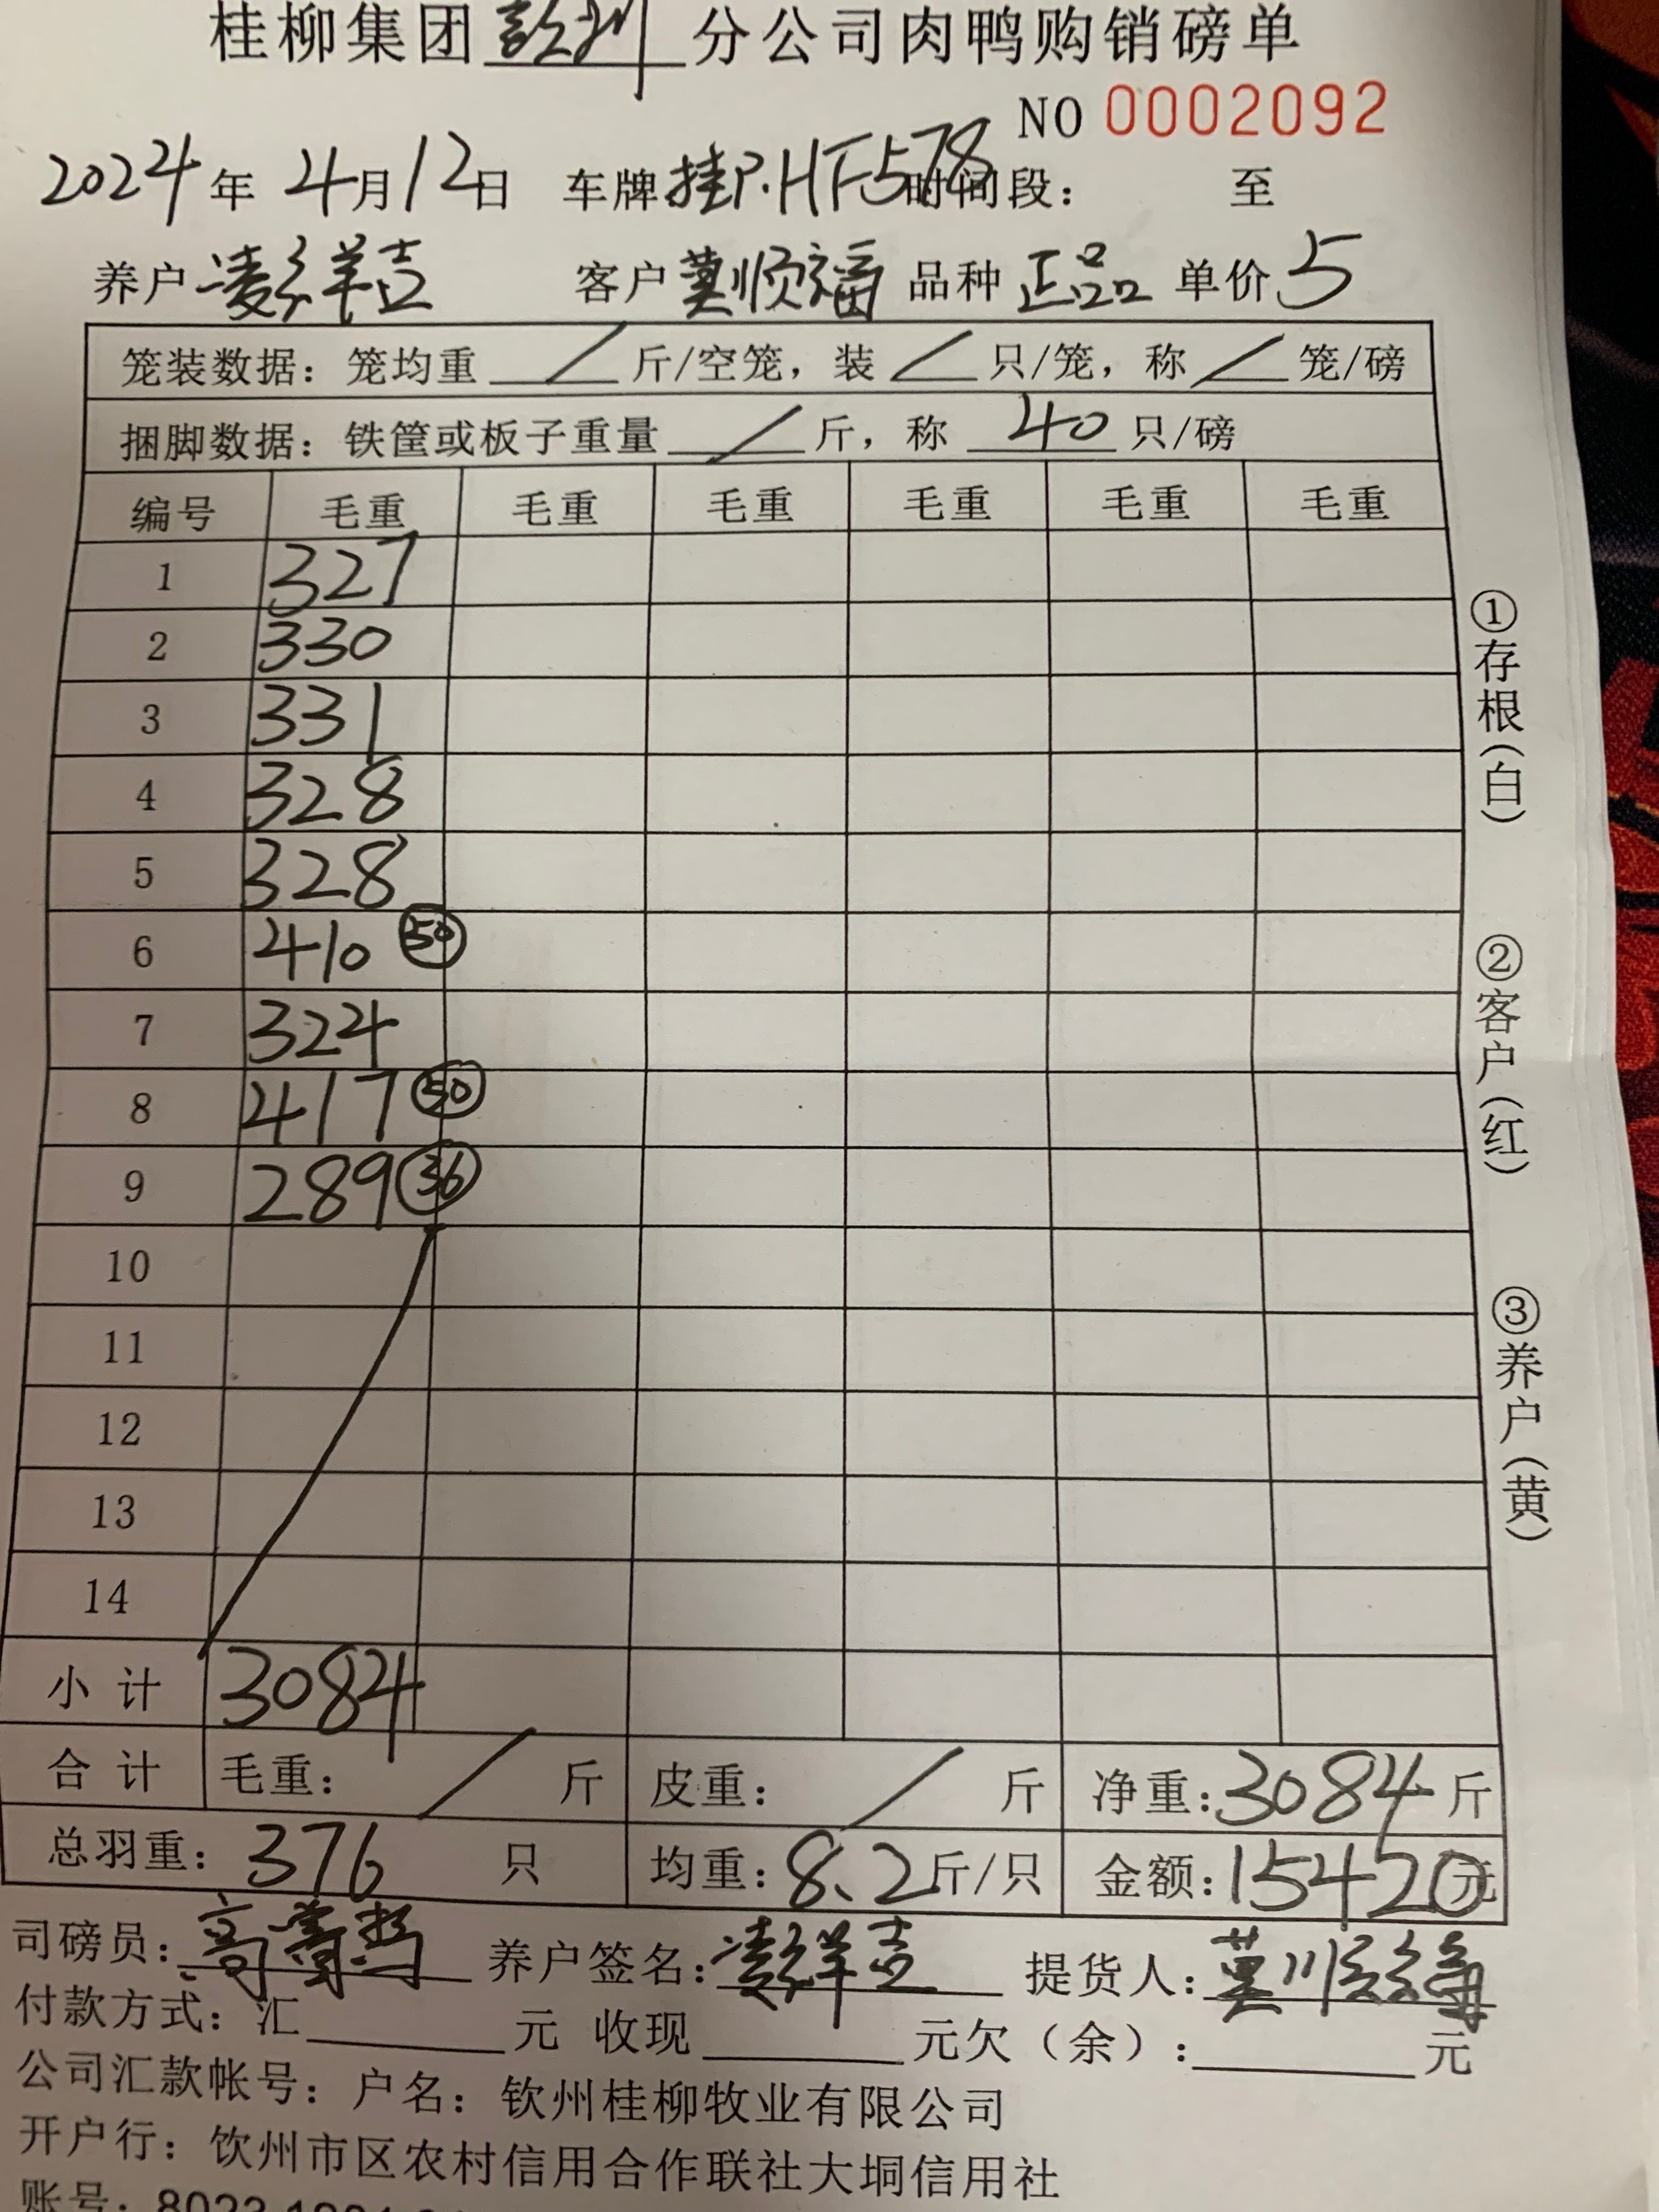 桂柳集团钦州分公司肉鸭购销磅单
NO 0002092
2024年 4月12日 车牌桂P.HF578时间段： 至
养户凌祥吉 客户莫顺福 品种正品 单价5
笼装数据：笼均重 / 斤/空笼，装 / 只/笼，称 / 笼/磅
捆脚数据：铁筐或板子重量 / 斤，称 40 只/磅
编号 毛重 毛重 毛重 毛重 毛重 毛重
1 327
2 330
3 331
4 328
5 328
6 410 50
7 324
8 417 50
9 289 36
10
11
12
13
14
小计 3084
合计 毛重： / 斤 皮重： / 斤 净重：3084斤
总羽重：376 只 均重：8.2斤/只 金额：15420元
司磅员： 养户签名：凌祥吉 提货人：莫顺福
付款方式：汇 元 收现 元欠（余）： 元
公司汇款帐号：户名：钦州桂柳牧业有限公司
开户行：钦州市区农村信用合作联社大垌信用社
账号：8023
①存根（白）
②客户（红）
③养户（黄）